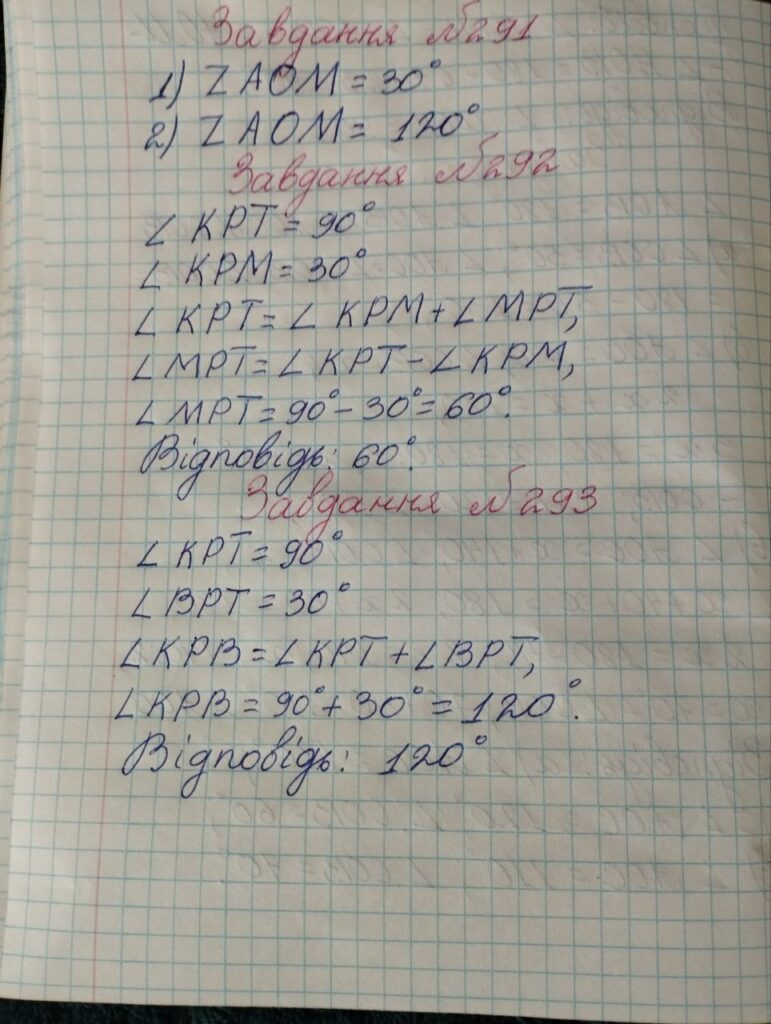 Завдання №291
1) ∠AOM = 30°
2) ∠AOM = 120°
Завдання №292
∠ KPT = 90°
∠ KPM = 30°
∠ KPT = ∠ KPM + ∠MPT,
∠MPT = ∠KPT - ∠KPM,
∠MPT = 90° - 30° = 60°.
Відповідь: 60°.
Завдання №293
∠ KPT = 90°
∠BPT = 30°
∠KPB = ∠KPT + ∠BPT,
∠KPB = 90° + 30° = 120°.
Відповідь: 120°